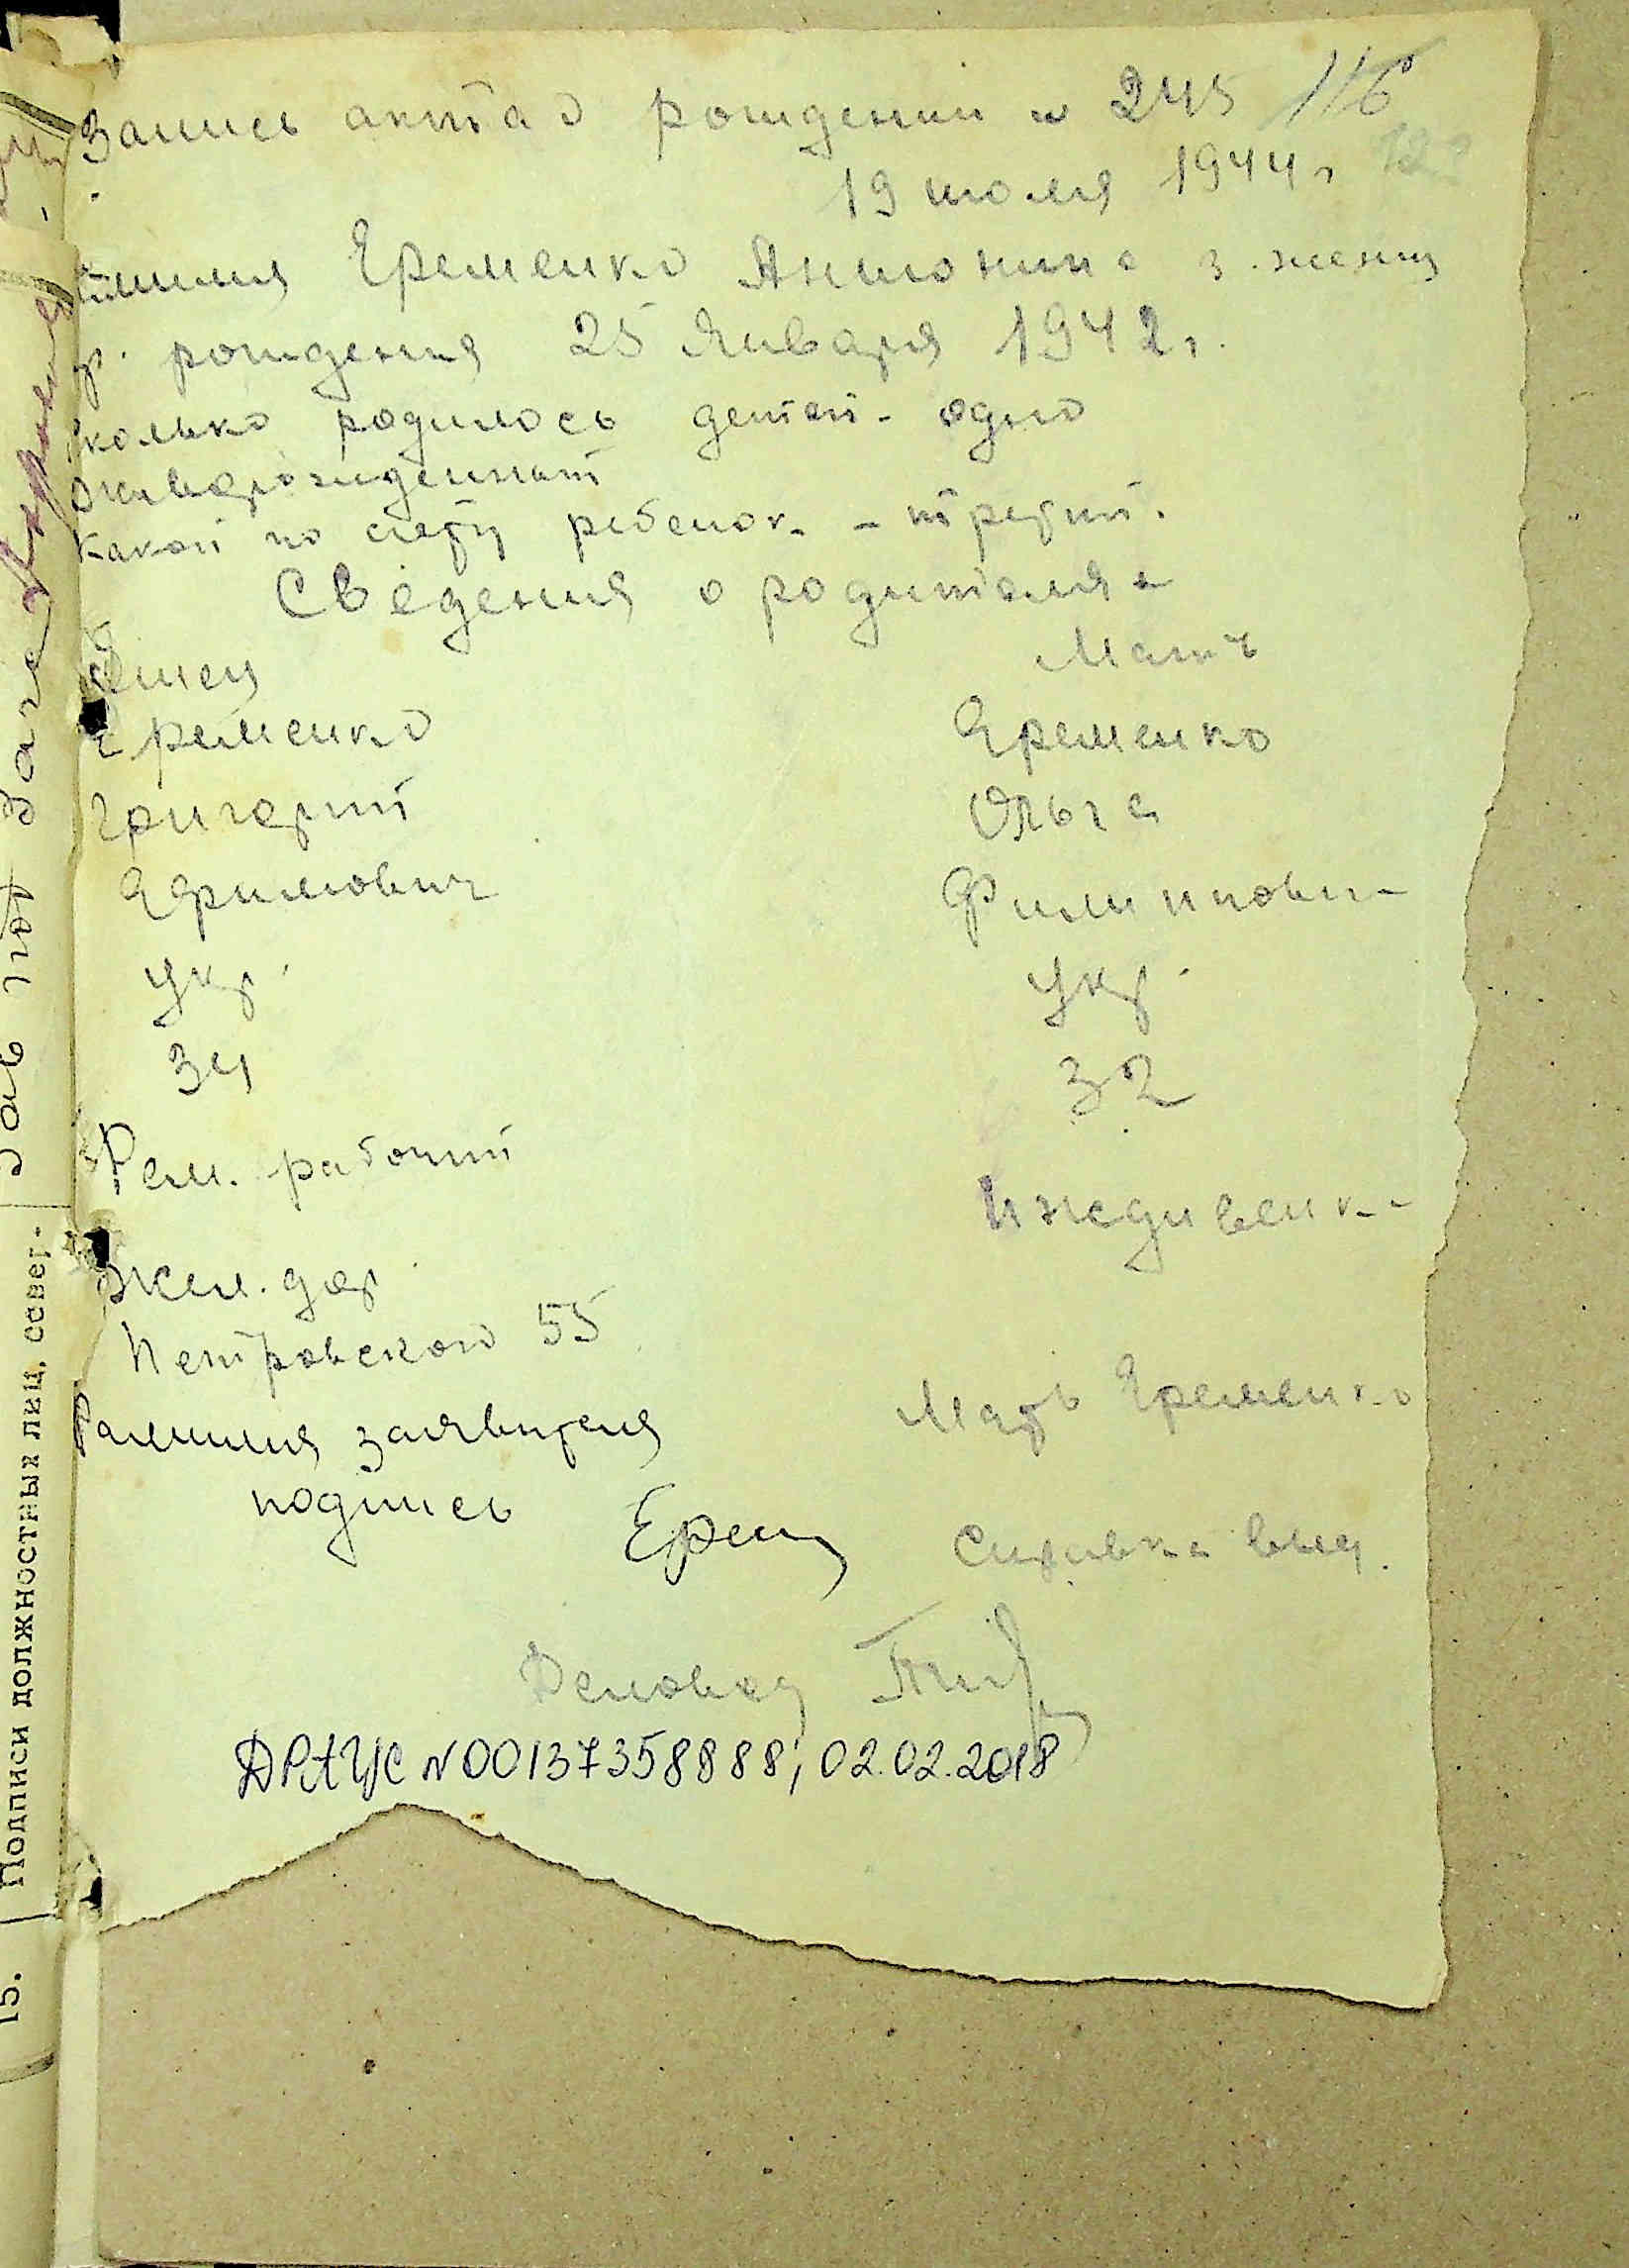 Запись акта о рождении N 245 116
19 июля 1944 г
Фамилия Еременко Антонина 3. женщ
вр. рождения 25 Января 1942 г.
Сколько родилось детей - одно
Живорожденных
Какой по счету ребенок - третий.
Сведения о родителях
Отец Мать
Еременко Еременко
Григорий Ольга
Ефимович Филипповн
Укр. Укр.
34 32
Рем. рабочий
Иждивенка
Жел. дор.
Петровского 55
Фамилия заявителя Мать Еременко
подпись Ерем Справка выд.
Деловод
ДРАЦС N 00137358888; 02.02.2018
15. Подписи должностных лиц, совер-
Зав пог Загс